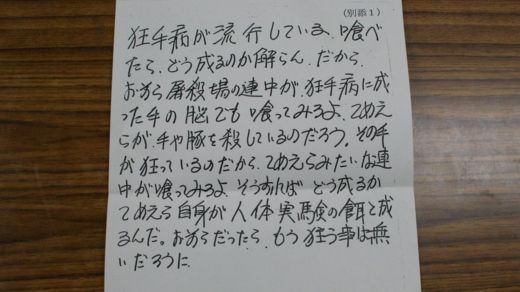 (別添1)
狂牛病が流行している、喰べ
たら、どう成るのか解らん。だから
おまえら屠殺場の連中が、狂牛病に成
った牛の脳でも喰ってみろよ、てめえ
らが、牛や豚を殺しているのだろう。その牛
が狂っているのだから、てめえらみたいな連
中が喰ってみろよ、そうすれば どう成るか
てめえら自身が人体実験の餌と成
るんだ。おまえらだったら、もう狂う事は無
いだろうに